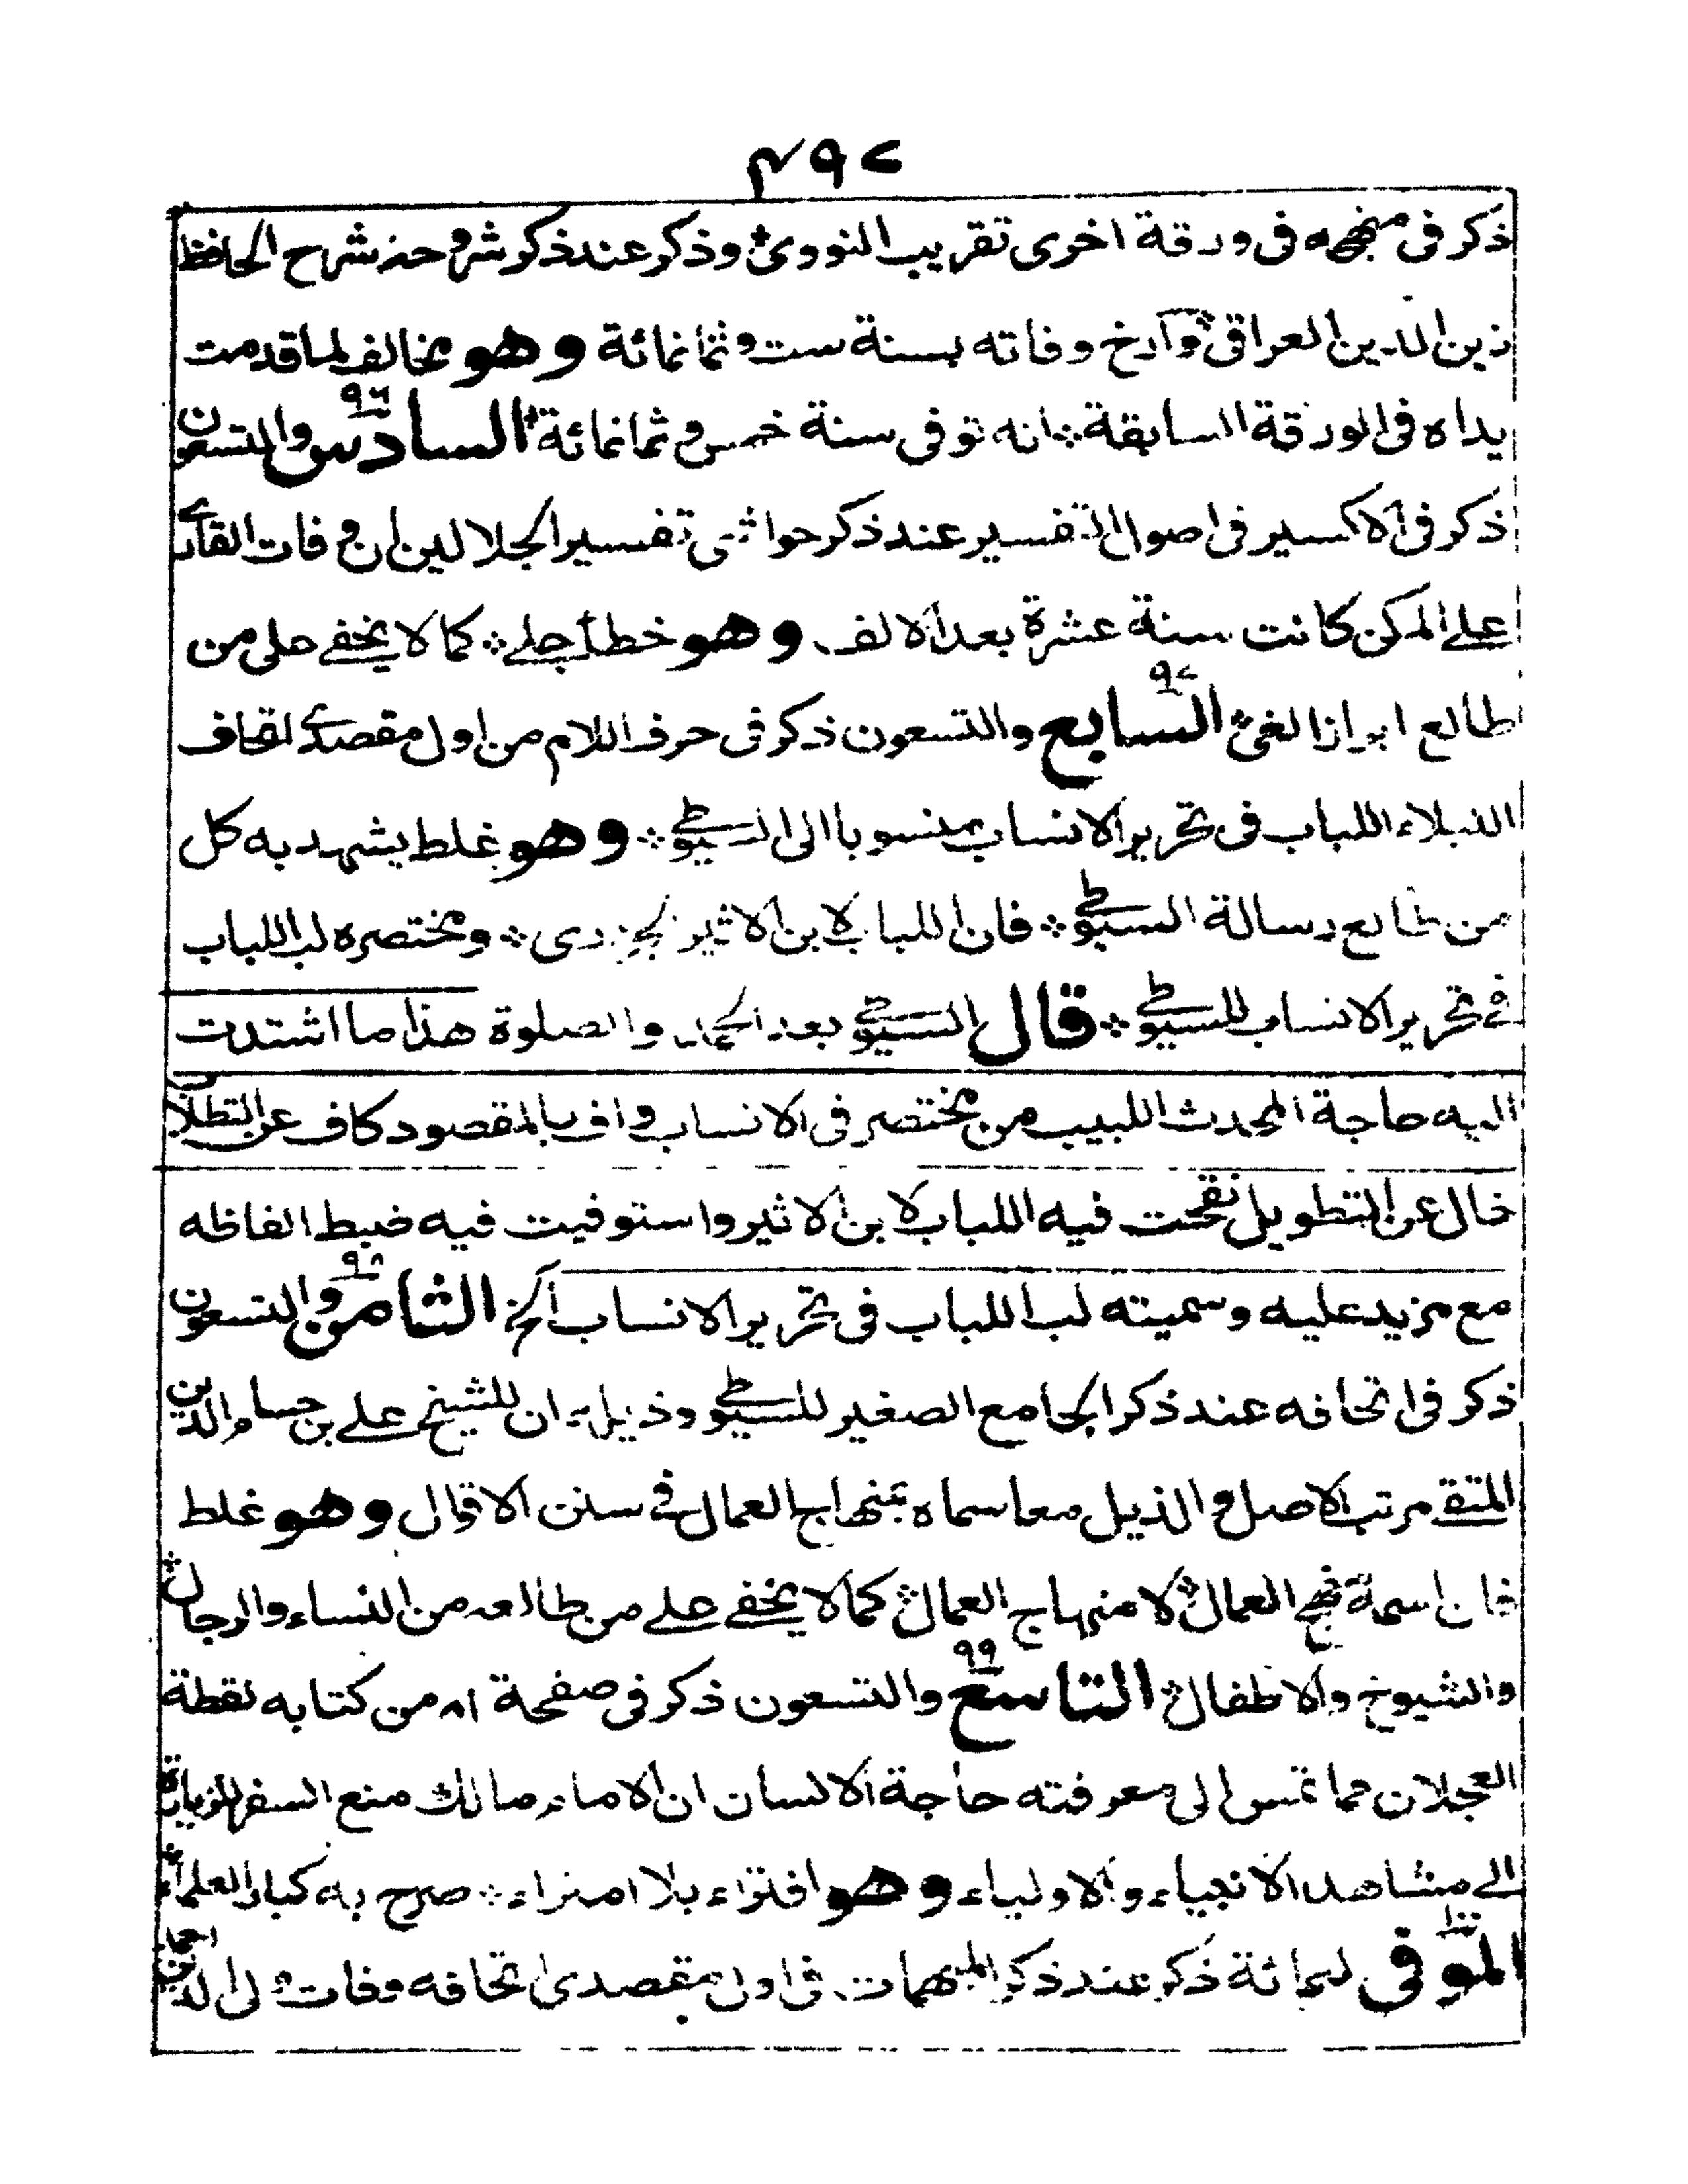 ٤٩٧
ذكر فى منهجه فى ورقة اخرى تقريب النووى وذكر عند ذكر شروحه شرح الحافظ
زين الدين العراقى وارخ وفاته بسنة ست وثمانمائة وهو مخالف لما قدمت
يداه فى الورقة السابقة انه توفى سنة خمس وثمانمائة السادس والتسعون ٩٦
ذكر فى الاكسير فى اصول التفسير عند ذكر حواشى تفسير الجلالين ان وفات القارى
على المكى كانت سنة عشرة بعد الالف وهو خطأ جلے كما لا يخفے على من
طالع ابراز الغى السابع ٩٧ والتسعون ذكر فى حرف اللام من اول مقصدے اتحاف
النبلاء اللباب فى تحرير الانساب منسوبا الى السيوطے وهو غلط يشهد به كل
من طالع رسالة السيوطے فان اللباب لابن الاثير الجزرى ومختصره لب اللباب
فے تحرير الانساب للسيوطے قال السيوطے بعد الحمد والصلوة هذا ما اشتدت
اليه حاجة المحدث اللبيب من مختصر فى الانساب واف بالمقصود كاف عن التطلاب
خال عن التطويل نقحت فيه اللباب لابن الاثير واستوفيت فيه ضبط الفاظه
مع مزيد عليه وسميته لب اللباب فى تحرير الانساب الخ الثامن ٩٨ والتسعون
ذكر فى اتحافه عند ذكر الجامع الصغير للسيوطے وذيله ان للشيخ علے بن حسام الدين
المتقے مرتب الاصل والذيل معا سماه بمنهاج العمال فے سنن الاقوال وهو غلط
فان اسمه نهج العمال لا منهاج العمال كما لا يخفے علے من طالعه من النساء والرجال
والشيوخ والاطفال التاسع ٩٩ والتسعون ذكر فى صفحة ٨١ من كتابه لقطة
العجلان مما تمس الى معرفته حاجة الانسان ان الامام مالك منع السفر للزيارة
الے مشاهد الانبياء والاولياء وهو افتراء بلا امتراء صرح به كبار العلماء
الموفى ١٠٠ لمائة ذكر عند ذكر المبهمات فى اول مقصدى اتحافه وفات ولى الدين احمد بن